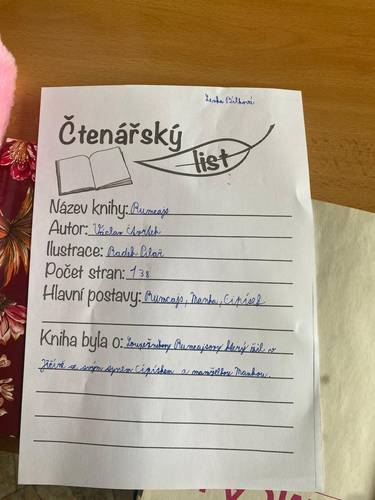 Lenka Bílková
Čtenářský
list
Název knihy: Rumcajs
Autor: Václav Čtvrtek
Ilustrace: Radek Pilař
Počet stran: 138
Hlavní postavy: Rumcajs, Manka, Cipísek
Kniha byla o: Loupežníkovi Rumcajsovi který žil v
Jičíně se svým synem Cipískem a manželkou Mankou.